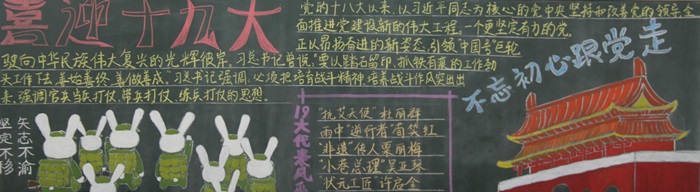 喜迎十九大
驶向中华民族伟大复兴的光辉彼岸。习总书记曾说,"要以踏石留印、抓铁有痕的工作劲
天工作下去,善始善终、善做善成。习总书记强调,必须把培育战斗精神,培养战斗作风突出出
来,强调官兵当兵打仗、带兵打仗、练兵打仗的思想。
党的十八大以来,以习近平同志为核心的党中央坚持和改善党的领导,全
面推进党建设新的伟大工程。一个更坚定有力的党,
正以昂扬奋进的新姿态,引领中国号巨轮
不忘初心跟党走
矢志不渝
坚定不移
19大代表风
"抗艾天使"杜丽群
雨中"逆行者"
"非遗"传人粟丽梅
"小巷总理"吴亚琴
状元工匠 许启金